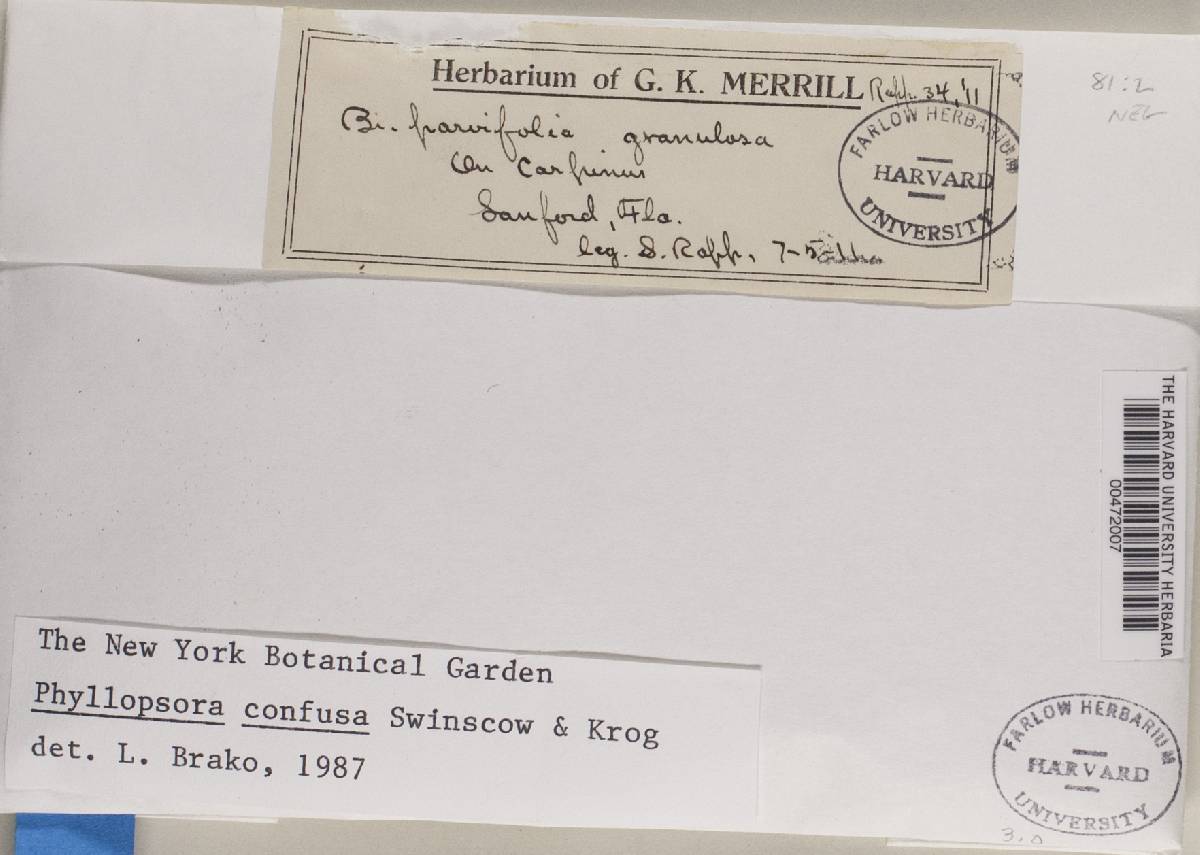 Herbarium of G. K. MERRILL Rapp. 34, '11
Bi. parvifolia granulosa
On Carpinus
Sanford, Fla.
leg. S. Rapp,
FARLOW HERBARIUM
HARVARD
UNIVERSITY
81:2
THE HARVARD UNIVERSITY HERBARIA
00472007
The New York Botanical Garden
Phyllopsora confusa Swinscow & Krog
det. L. Brako, 1987
FARLOW HERBARIUM
HARVARD
UNIVERSITY
3.0